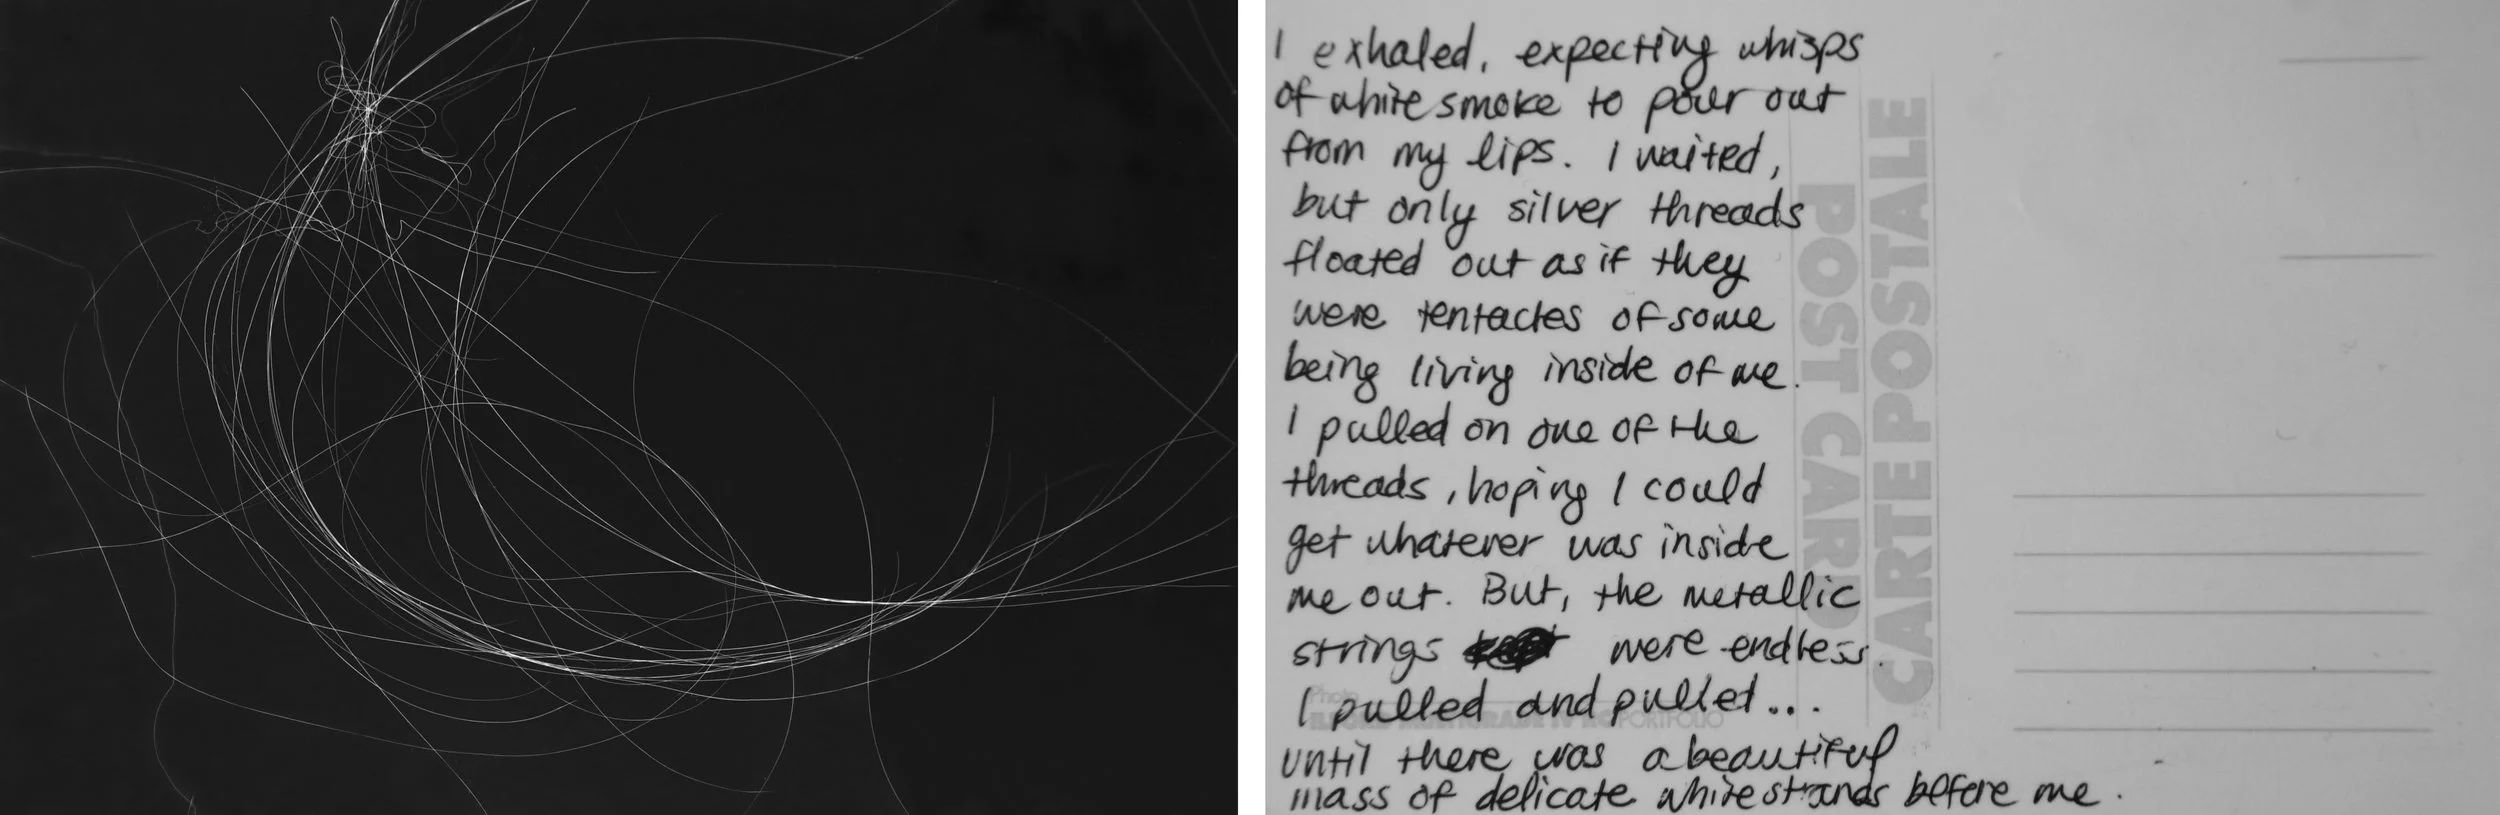 I exhaled, expecting whisps
of white smoke to pour out
from my lips. I waited,
but only silver threads
floated out as if they
were tentacles of some
being living inside of me.
I pulled on one of the
threads, hoping I could
get whatever was inside
me out. But, the metallic
strings were endless.
I pulled and pulled...
until there was a beautiful
mass of delicate white strands before me.
POST CARD
CARTE POSTALE
Photo
PORTFOLIO